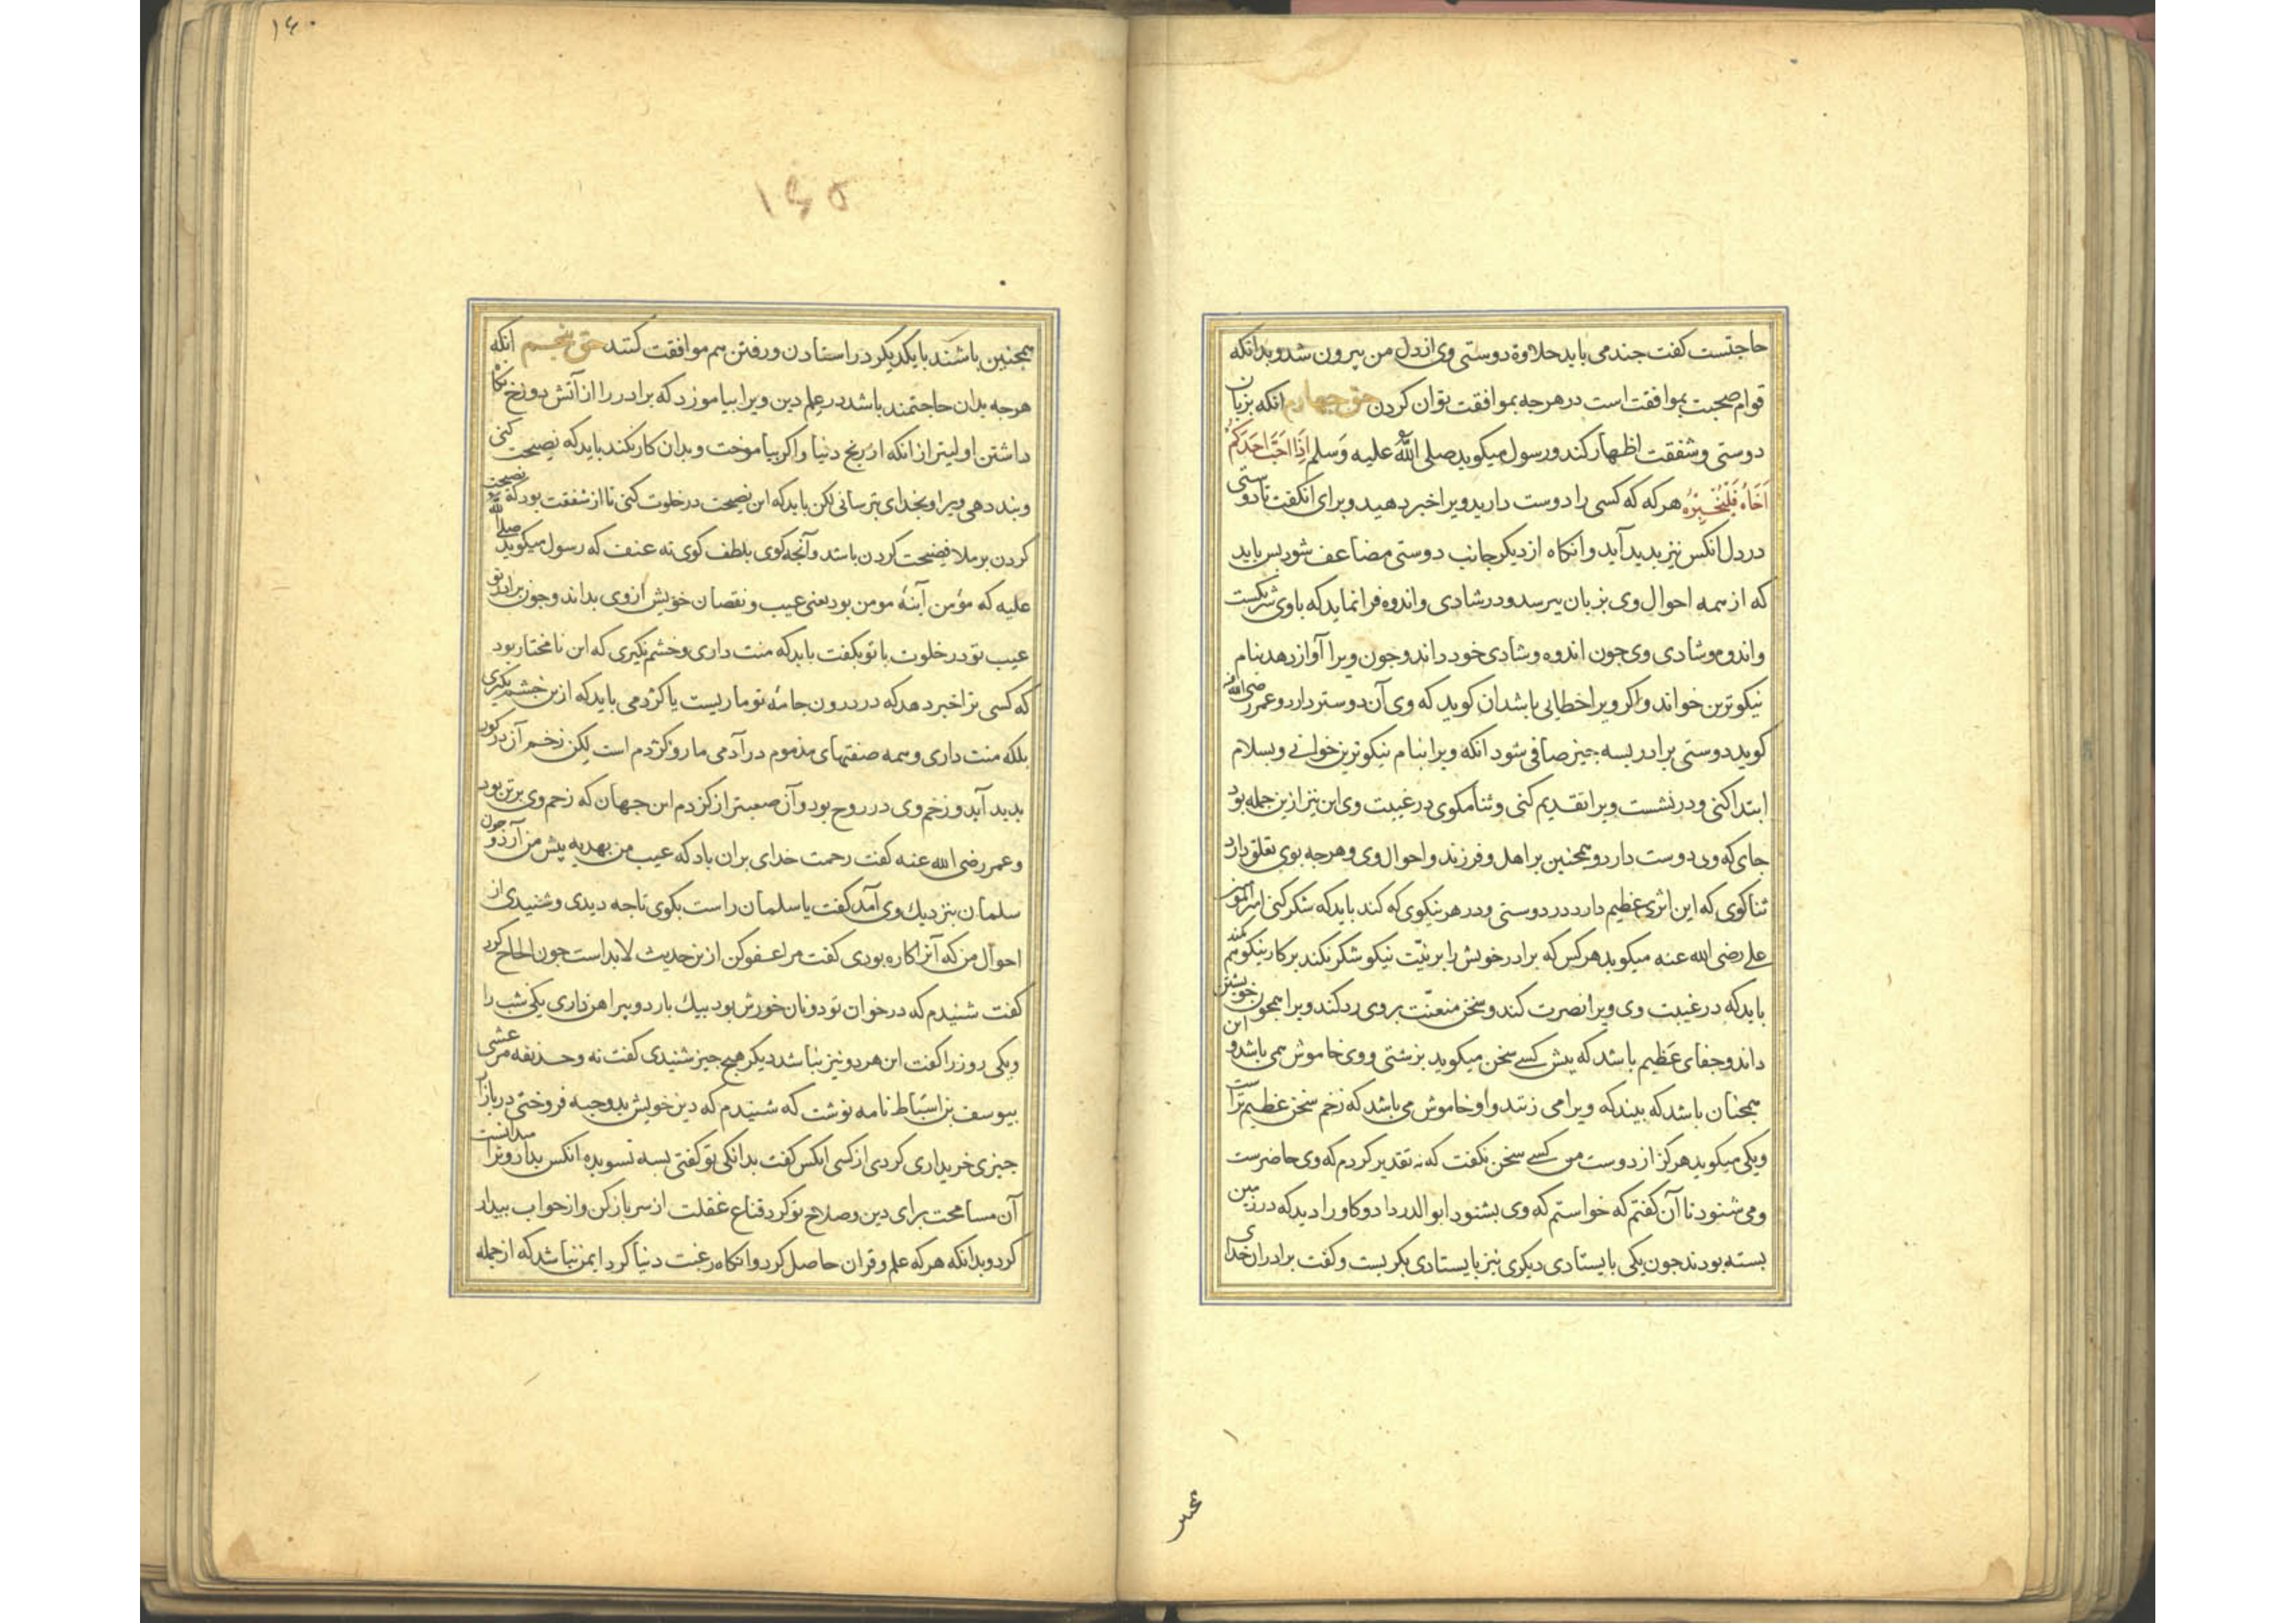 حاجتست کفت جندمی باید حلاوة دوستی وی از دل من بیرون شد وبدانکه
قوام صحبت بموافقت است در هرجه بموافقت توان کردن حق جهارم انکه بزبان
دوستی وشفقت اظهار کند ورسول میکوید صلی الله علیه وسلم اذا احب احدکم
اخاه فلیخبره هرکه که کسی را دوست دارید ویرا خبر دهید وبرای انکفت تا دوستی
در دل انکس نیز بدید آید وانکاه از دیکر جانب دوستی مضاعف شود بس باید
که از همه احوال وی بزبان ببرسد ودر شادی واندوه فرا نماید که با وی شریکست
واندوه وشادی وی جون اندوه وشادی خود داند وجون ویرا آواز دهد بنام
نیکوترین خواند واکر ویرا خطابی باشد ان کوید که وی آن دوستر دارد وعمر رضی الله عنه
کوید دوستی برادر بسه جیز صافی شود انکه ویرا بنام نیکوترین خوانی وبسلام
ابتدا کنی ودر نشست ویرا تقدیم کنی وثنا مکوی در غیبت وی این نیز ازین جمله بود
جای که وی دوست دارد وهمجنین بر اهل وفرزند واحوال وی وهرجه بوی تعلق دارد
ثنا کوی که این اثری عظیم دارد در دوستی ودر هر نیکوی که کند باید که شکر کنی امیرالمومنین
علی رضی الله عنه میکوید هرکس که برادر خویش را بر نیت نیکو شکر نکند بر کار نیکو هم نکند
باید که در غیبت وی ویرا نصرت کند وسخن متعنت بروی رد کند ویرا همجون خویشتن
داند وجفای عظیم باشد که بیش کسی سخن میکوید بزشتی ووی خاموش می باشد واین
همجنان باشد که بیند که ویرا می زنند واو خاموش می باشد که زخم سخن عظیم تر است
ویکی میکوید هرکز از دوست من کسی سخن نکفت که نه تقدیر کردم که وی حاضرست
ومی شنود تا آن کفتم که خواستم که وی بشنود ابوالدردا دو کاو را دید که در زمین
بسته بودند جون یکی بایستادی دیکری نیز بایستادی بکریست وکفت برادران خدای
۱۶۰
۱۶۵
همجنین باشند با یکدیکر در استادن ورفتن هم موافقت کنند حق بنجم انکه
هرجه بدان حاجتمند باشد در علم دین ویرا بیاموزد که برادر را از آتش دوزخ نکاه
داشتن اولیتر از انکه از رنج دنیا واکر بیاموخت وبدان کار نکند باید که نصیحت کنی
وبند دهی ویرا وبخدای بترسانی لکن باید که این نصیحت در خلوت کنی تا از شفقت بود که نصیحت
کردن بر ملا فضیحت کردن باشد وآنجه کوی بلطف کوی نه عنف که رسول میکوید صلی الله
علیه که مؤمن آینهٔ مومن بود یعنی عیب ونقصان خویش ازوی بداند وجون برادر تو
عیب تو در خلوت با تو بکفت باید که منت داری وخشم نکیری که این نا مختار بود
که کسی ترا خبر دهد که در درون جامهٔ تو ماریست یا کژدمی باید که ازین خشم نکیری
بلکه منت داری وهمه صفتهای مذموم در آدمی مار وکژدم است لیکن زخم آن در کور
بدید آید وزخم وی در روح بود وآن صعبتر از کژدم این جهان که زخم وی بر تن بود
وعمر رضی الله عنه کفت رحمت خدای بران باد که عیب من بهدیه بیش من آرد وجون
سلمان بنزدیك وی آمد کفت یا سلمان راست بکوی تا جه دیدی وشنیدی از
احوال من که آنرا کاره بودی کفت مرا عفو کن ازین حدیث لابد است جون الحاح کرد
کفت شنیدم که در خوان تو دو نان خورش بود بیك بار ودو بیراهن داری یکی شب را
ویکی روز را کفت این هر دو نیز نباشد دیکر هیج جیز شنیدی کفت نه وحذیفه مرعشی
بیوسف بن اسباط نامه نوشت که شنیدم که دین خویش بدو جبه فروختی در بازار
جیزی خریداری کردی از کسی انکس کفت بدانکی تو کفتی بسه تسو بده انکس بداد وترا میدانست
آن مسامحت برای دین وصلاح تو کرد قناع غفلت از سر باز کن واز خواب بیدار
کرد وبدانکه هرکه علم وقران حاصل کرد وانکاه رغبت دنیا کرد ایمن نباشد که از جمله